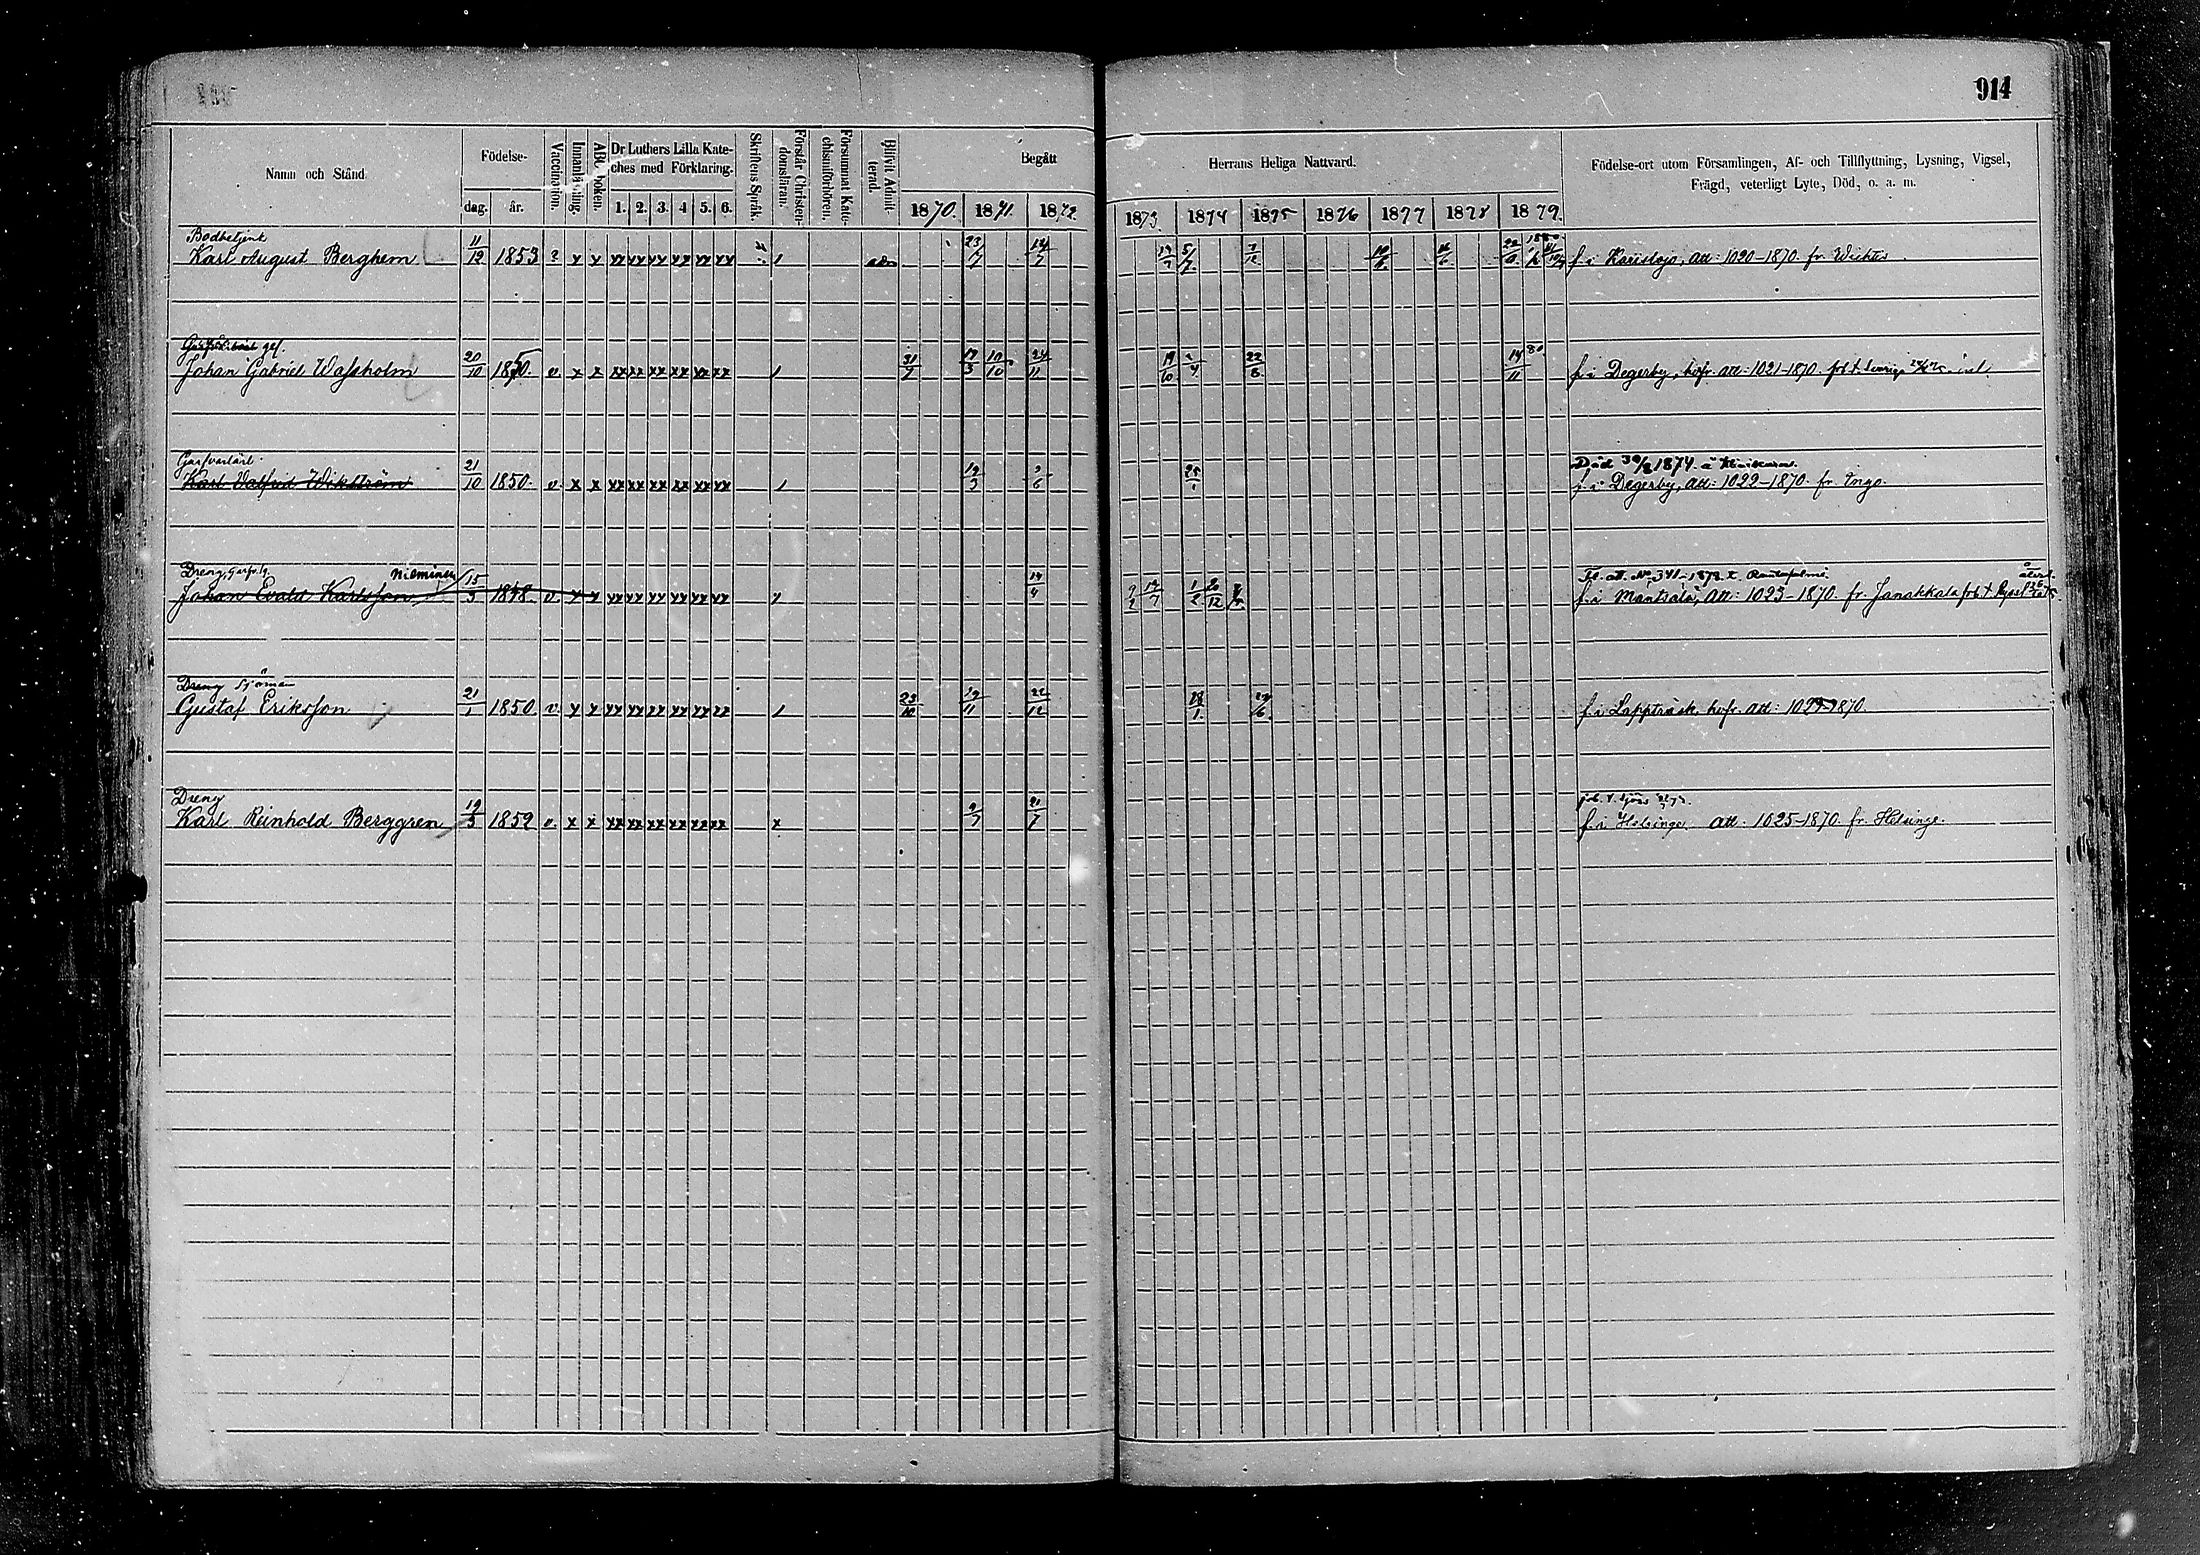 914
Namn och Stånd.
Födelse-
dag. år.
Vaccination.
Innanläsning.
ABC-boken.
Dr Luthers Lilla Kate-
ches med Förklaring.
1. 2. 3. 4 5. 6.
Skriftens Språk.
Förstår Christen-
domsläran.
Försummat Kate-
chismiförhören.
Blifvit Admit-
terad.
Begått
1870. 1871. 1872
Herrans Heliga Nattvard.
1873. 1874 1875 1876 1877 1878 1879.
Födelse-ort utom Församlingen, Af- och Tillflyttning, Lysning, Vigsel,
Frägd, veterligt Lyte, Död, o. a. m.
Bodbetjent
Karl August Berghem 11/12 1853 ? x x xx xx xx xx xx xx 23/7 f. i Karislojo, att: 1020-1870. fr. Wichtis
gef.
Johan Gabriel Wassholm 20/10 1850. v. x x xx xx xx xx xx xx 31/7 24/11 19/10 22/8 14/11 80 f. i Degerby, hofr. att: 1021-1870.
Garfvarlärl.
Karl Valfrid Wikström 21/10 1850. v. x x xx xx xx xx xx xx 19/3 Död 30/8 1874.
f. i Degerby, att: 1022-1870. fr. Ingo.
Dreng, Nieminen
Johan Evald Karlsson 15/3 1848 v. x x xx xx xx xx xx xx 14/4 Fl. att. No 341-1878 t. Rantasalmi.
f. i Mäntsälä, att: 1023-1870. fr. Janakkala
Dreng Sjöman
Gustaf Eriksson 21/1 1850. v. x x xx xx xx xx xx xx 23/10 19/11 22/12 18/1. f. i Lappträsk, hofr. att: 1024-1870.
Dreng
Karl Reinhold Berggren 19/3 1852 v. x x xx xx xx xx xx xx x 9/7 21/7
f. i Helsinge. att: 1025-1870. fr. Helsinge.